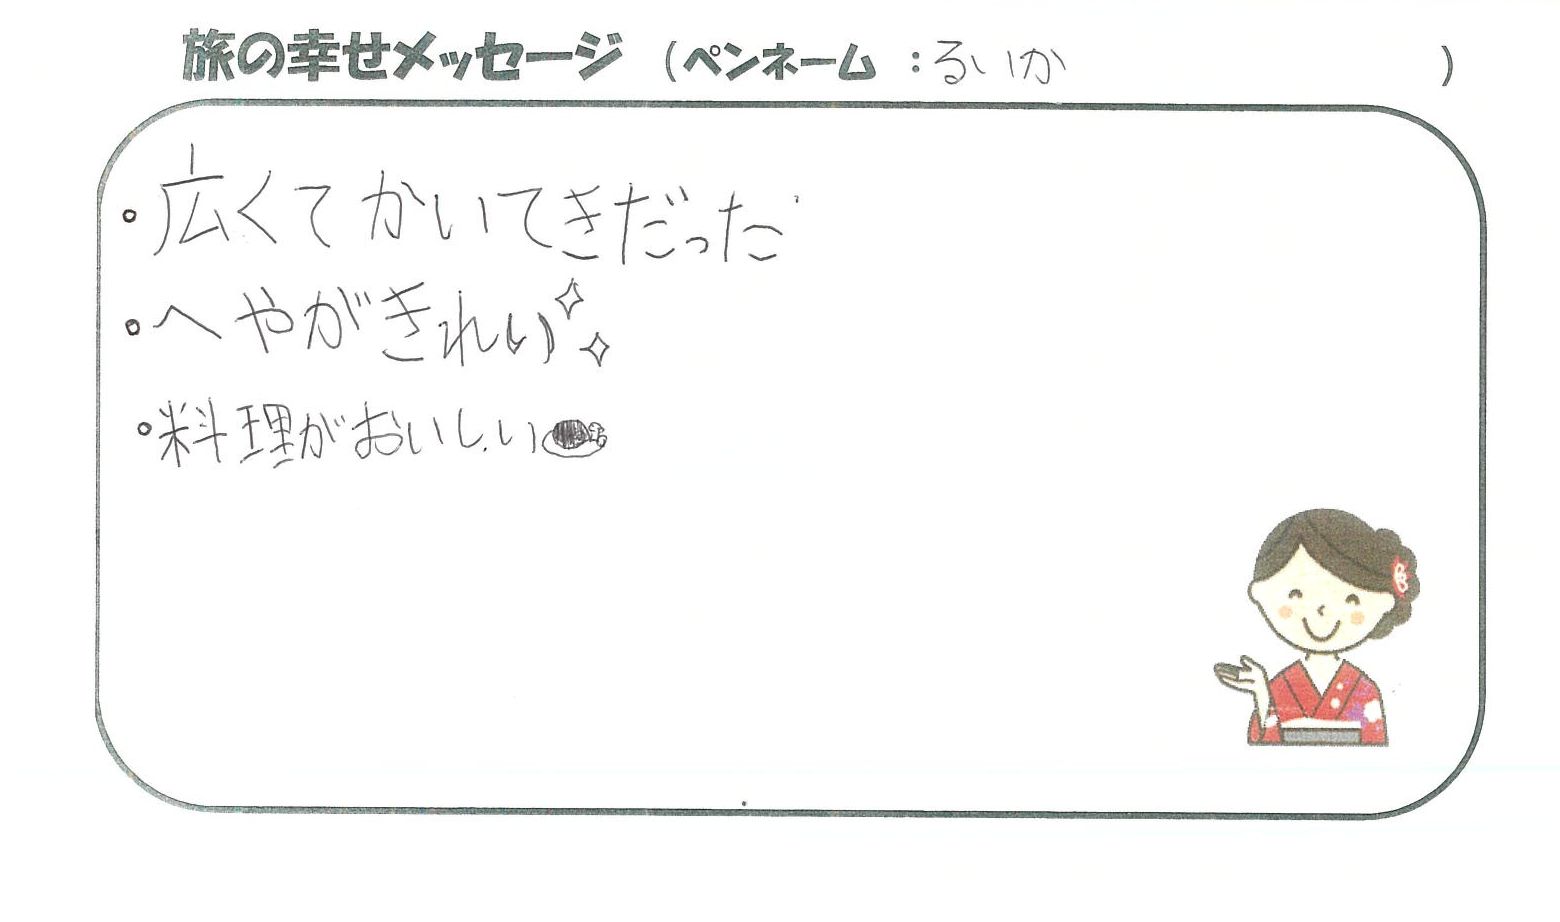 旅の幸せメッセージ (ペンネーム :るいか )
・広くてかいてきだった
・へやがきれい
・料理がおいしい